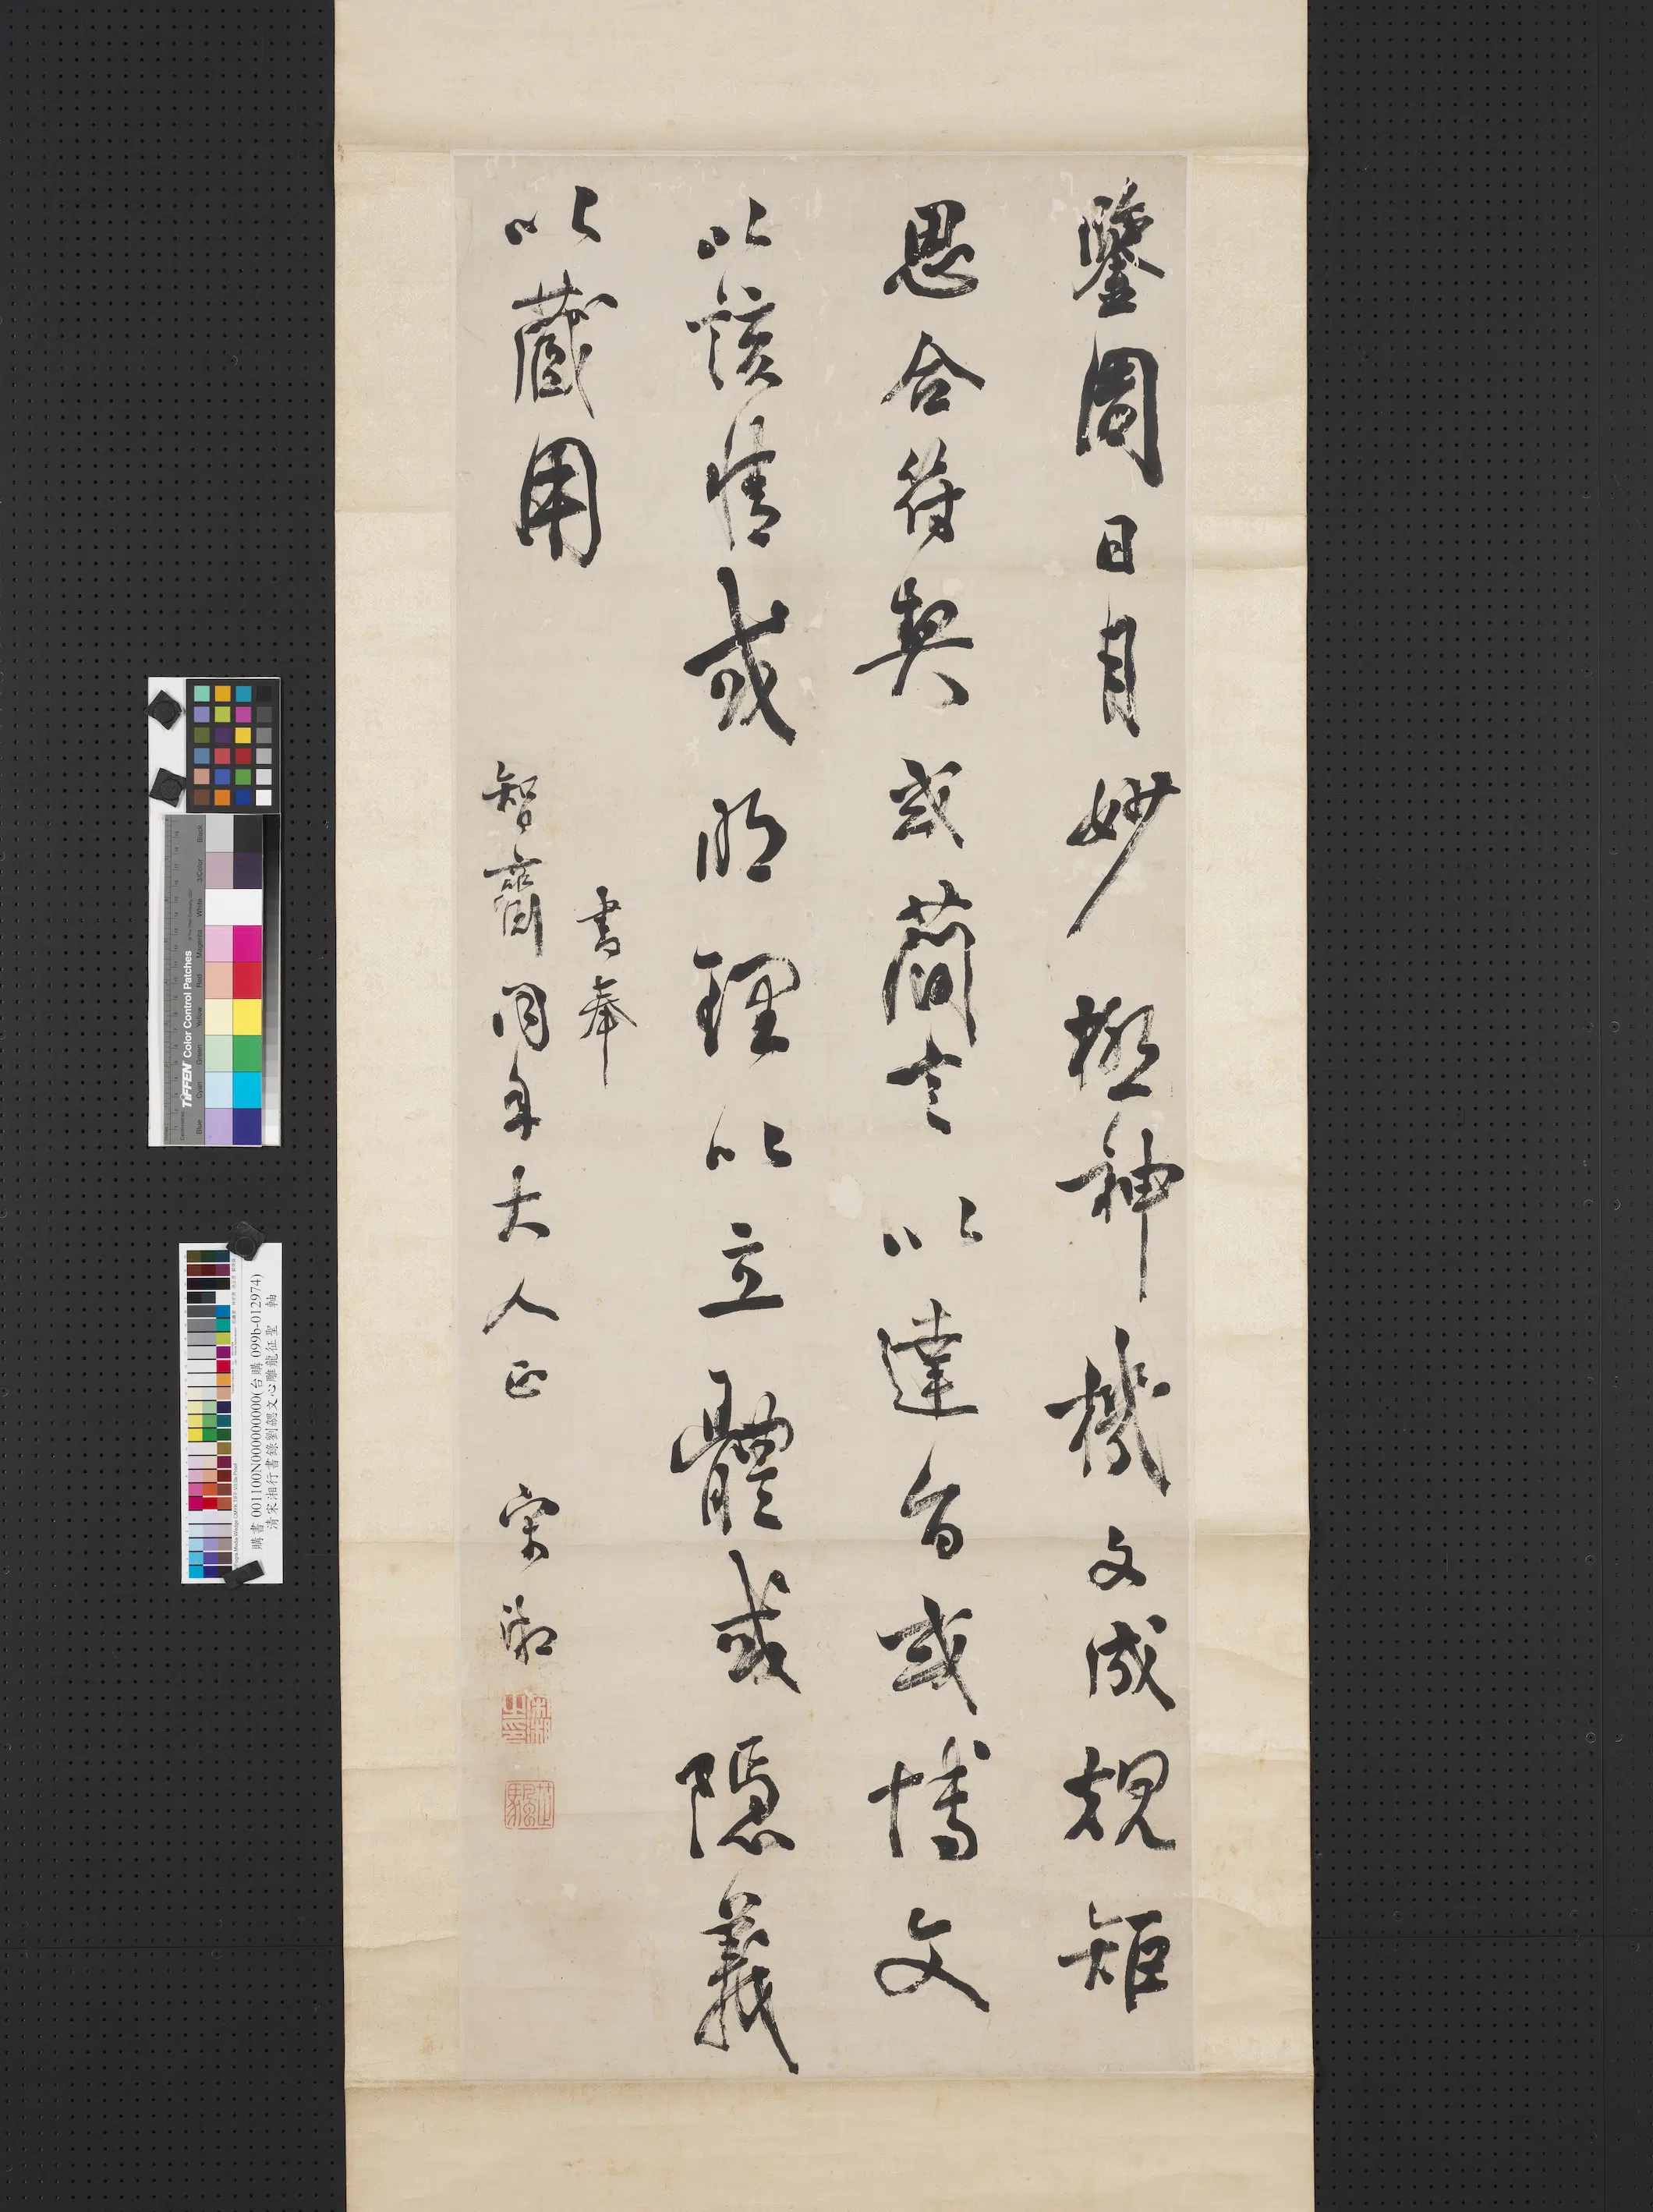 鑒周日月妙極神機文成規矩
思合符契或簡言以達旨或博文
以該情或明理以立體或隱義
以藏用
書奉
智齋同年大人正 宋湘
宋湘之印
芷灣
TIFFEN Color Control Patches
Blue Cyan Green Yellow Red Magenta White 3/Color Black
購書 001100N000000000(台購 099b-012974)
清宋湘行書錄劉勰文心雕龍征聖 軸